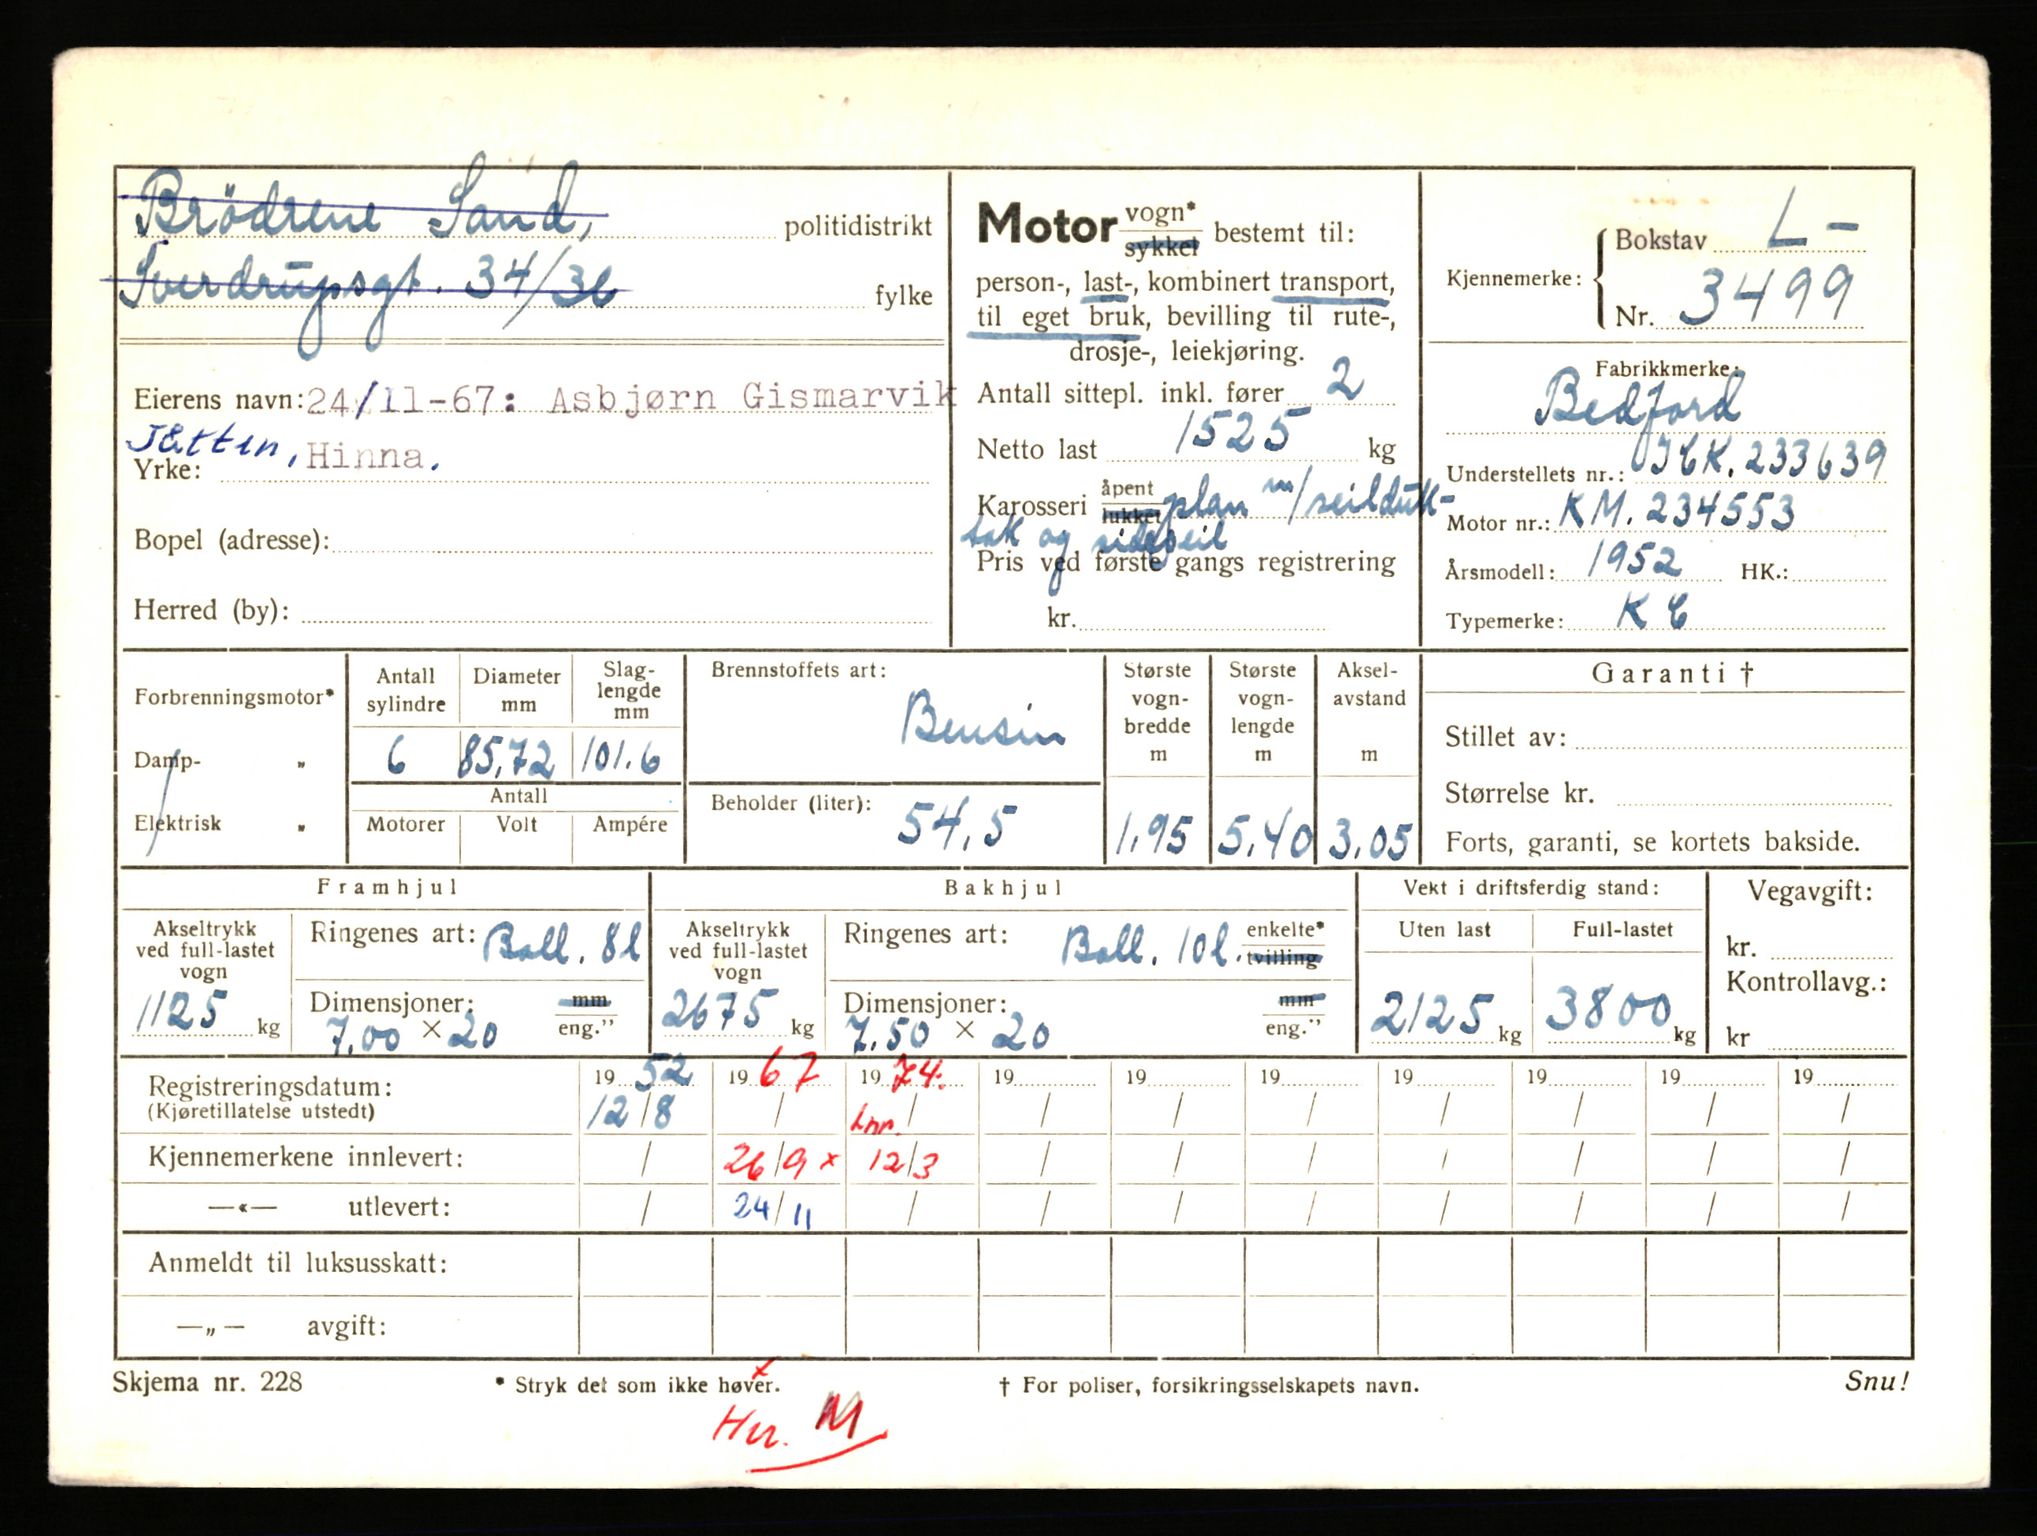 Brödrene Sand, politidistrikt
Sverdrupsgt. 34/36 fylke
Eierens navn: 24/11-67: Asbjørn Gismarvik
Jåtten, Hinna.
Yrke:
Bopel (adresse):
Herred (by):
Motor vogn* sykkel bestemt til:
person-, last-, kombinert transport,
til eget bruk, bevilling til rute-,
drosje-, leiekjøring.
Antall sittepl. inkl. fører 2
Netto last 1525 kg
Karosseri åpent lukket plan m/seilduk-
tak og sideseil
Pris ved første gangs registrering
kr.
Kjennemerke: Bokstav L-
Nr. 3499
Fabrikkmerke:
Bedford
Understellets nr.: JCK. 233639
Motor nr.: KM. 234553
Årsmodell: 1952 HK.:
Typemerke: KC
Forbrenningsmotor*
Damp- „
Elektrisk „
Antall sylindre 6
Diameter mm 85,72
Slag-lengde mm 101.6
Antall
Motorer Volt Ampére
Brennstoffets art:
Bensin
Beholder (liter):
54,5
Største vogn-bredde m 1.95
Største vogn-lengde m 5.40
Aksel-avstand m 3.05
Garanti †
Stillet av:
Størrelse kr.
Forts, garanti, se kortets bakside.
Framhjul
Akseltrykk ved full-lastet vogn 1125 kg
Ringenes art: Ball. 8 l
Dimensjoner: mm
7.00 × 20 eng."
Bakhjul
Akseltrykk ved full-lastet vogn 2675 kg
Ringenes art: Ball. 10 l. enkelte* tvilling
Dimensjoner: mm
7.50 × 20 eng."
Vekt i driftsferdig stand:
Uten last Full-lastet
2125 kg 3800 kg
Vegavgift:
kr.
Kontrollavg.:
kr
Registreringsdatum: 19 52 19 67 19 74. 19 19 19 19 19 19 19
(Kjøretillatelse utstedt) 12/8 / Lnr. / / / / / / / /
Kjennemerkene innlevert: / 26/9 x 12/3 / / / / / / /
—«— utlevert: / 24/11 / / / / / / / /
Anmeldt til luksusskatt:
—„— avgift:
Skjema nr. 228 * Stryk det som ikke høver. † For poliser, forsikringsselskapets navn. Snu!
x